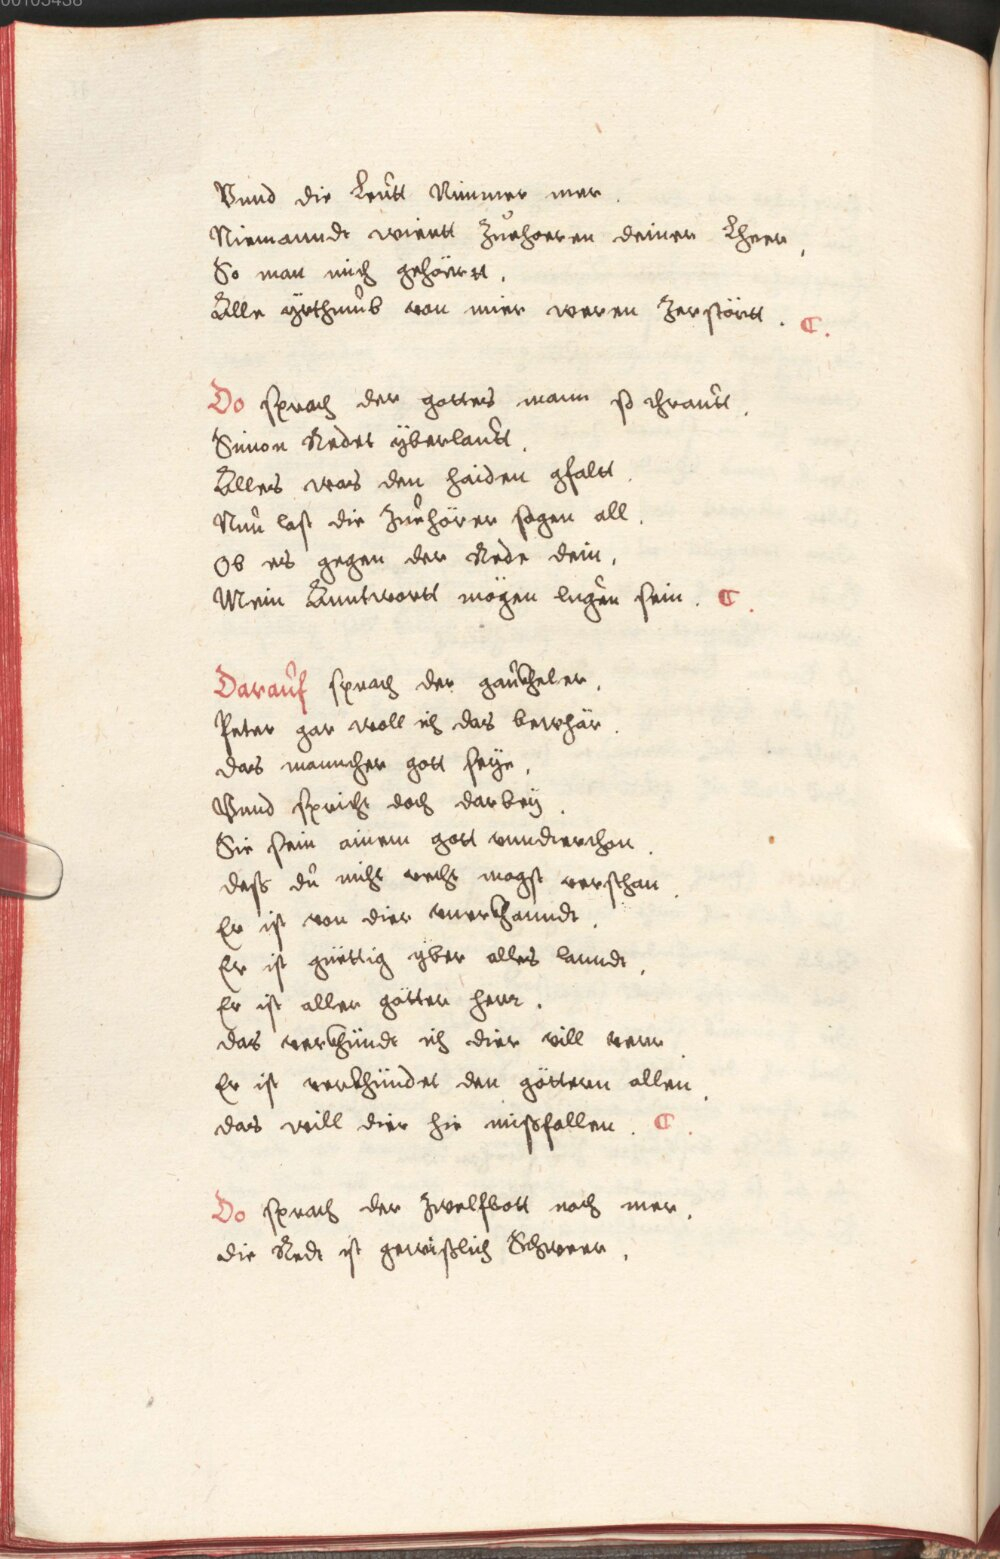 Vnnd die Leütt Nimmer mer.
Niemanndt wiertt Zuehoeren deiner Lheer,
So man mich gehöertt,
Alle yrthmüb von mier weren Zerstörtt. C.
Do sprach der gottes mann so thrautt,
Simon Redet yberlautt,
Alles was den haiden gfaltt.
Nun last die Zuehörer sagen all,
Ob es gegen der Rede dein,
Mein Anntwortt mögen lugen sein. C.
Darauf sprach der gaukheler,
Peter gar woll ich das bewhär.
das manncher gott seye,
Vnnd spricht doch darbey
Sie sein ainem gott vnndterthon
dess du nicht recht magst verstan
Er ist von dier vnerkhanndt,
Er ist güettig yber alles lanndt,
Er ist aller götter herr.
das verkhündt ich dier vill verr
Er ist verkhündet den göttern allen
das will dier hie missfallen. C.
Do sprach der Zwelfbott noch mer,
die Redt ist gewisslich Schweer,